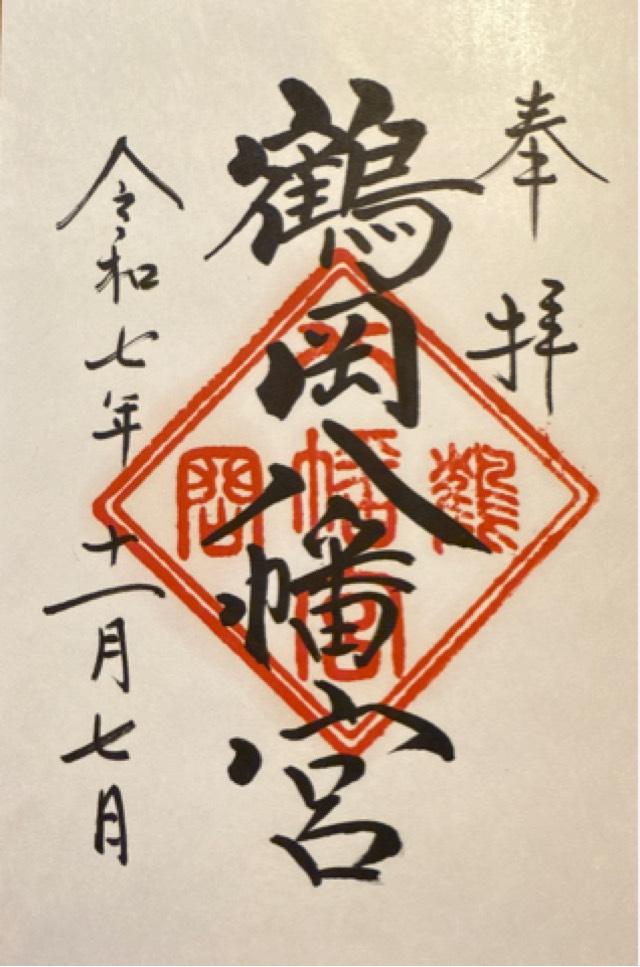 奉拝
鶴岡八幡宮
令和七年十一月七日
鶴岡八幡宮